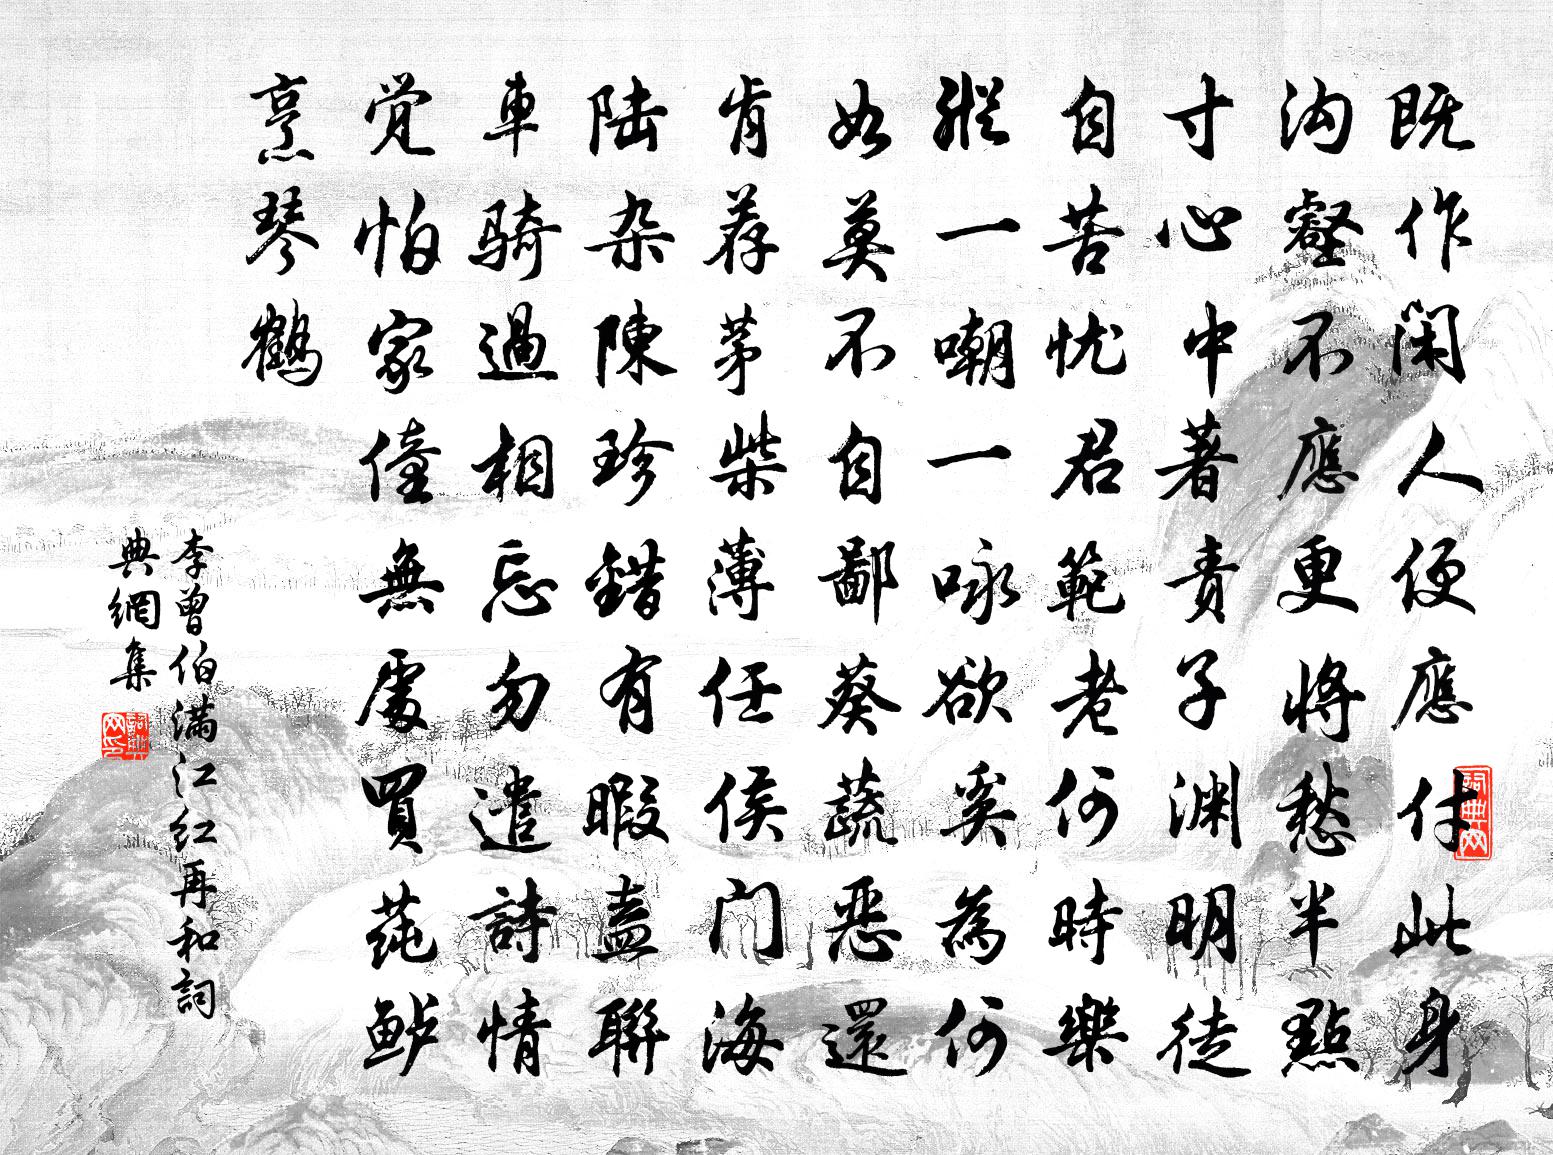 既作闲人便應付此身
沟壑不應更將愁半點
寸心中著责子渊明徒
自苦忧君範老何時樂
縱一嘲一咏欲奚為何
如莫不自鄙葵蔬恶還
肯荐茅柴薄任侯门海
陆杂陳珍錯有暇盍聯
車骑過相忘勿遣詩情
觉怕家僮無處買莼鲈
烹琴鹤
李曾伯满江红再和詞
典網集